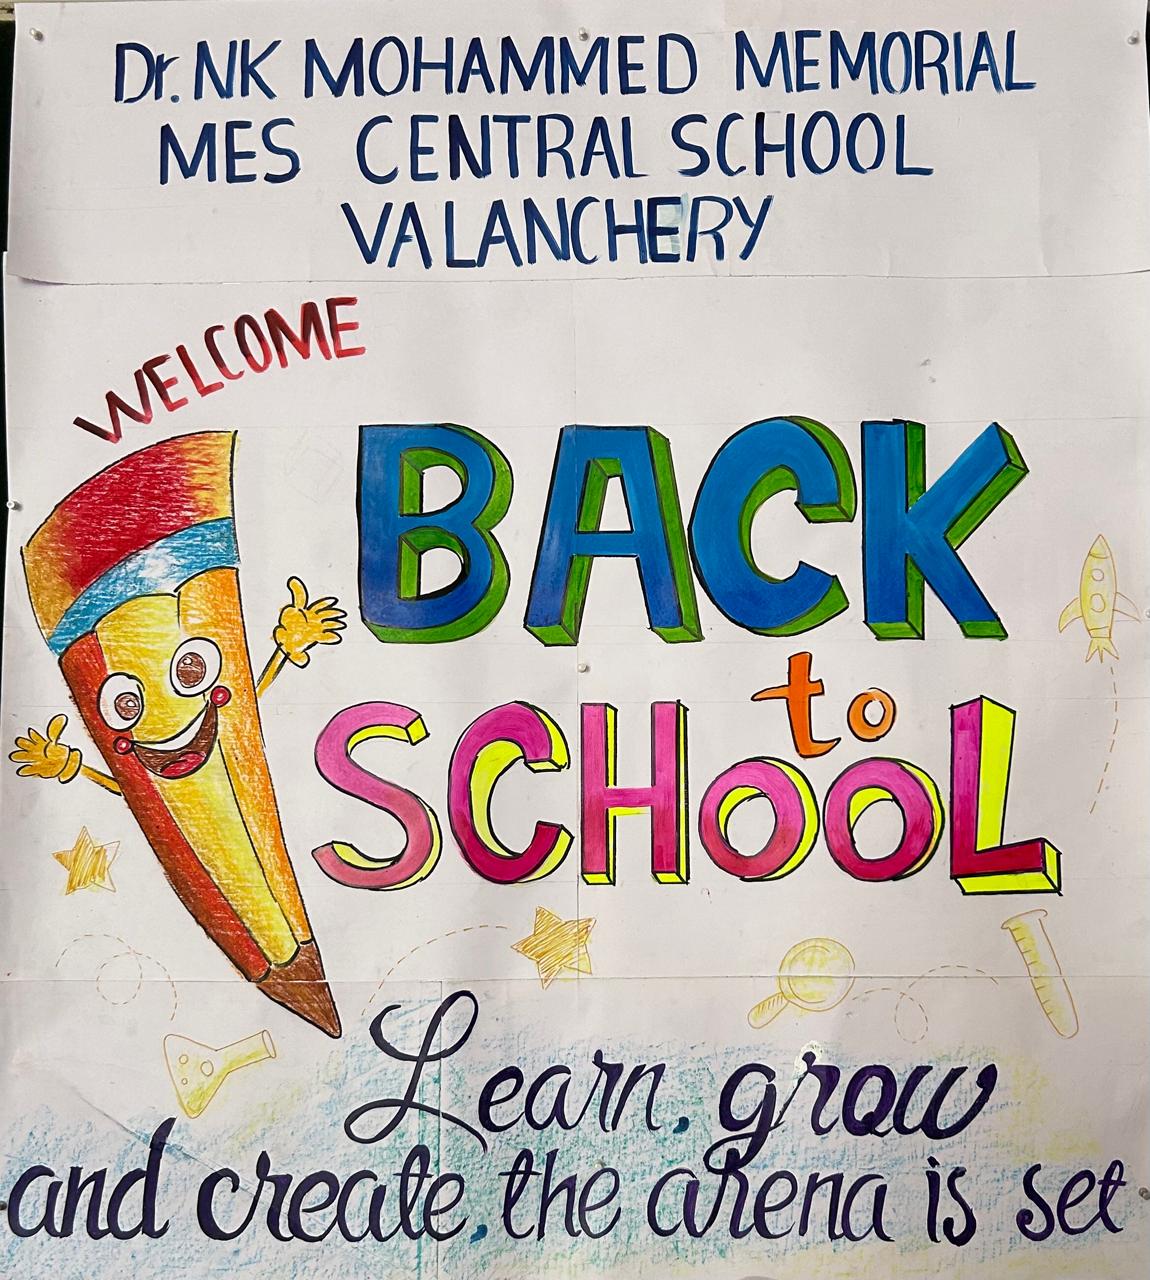 Dr. NK MOHAMMED MEMORIAL
MES CENTRAL SCHOOL
VALANCHERY
WELCOME
BACK
to
SCHOOL
Learn, grow
and create, the arena is set